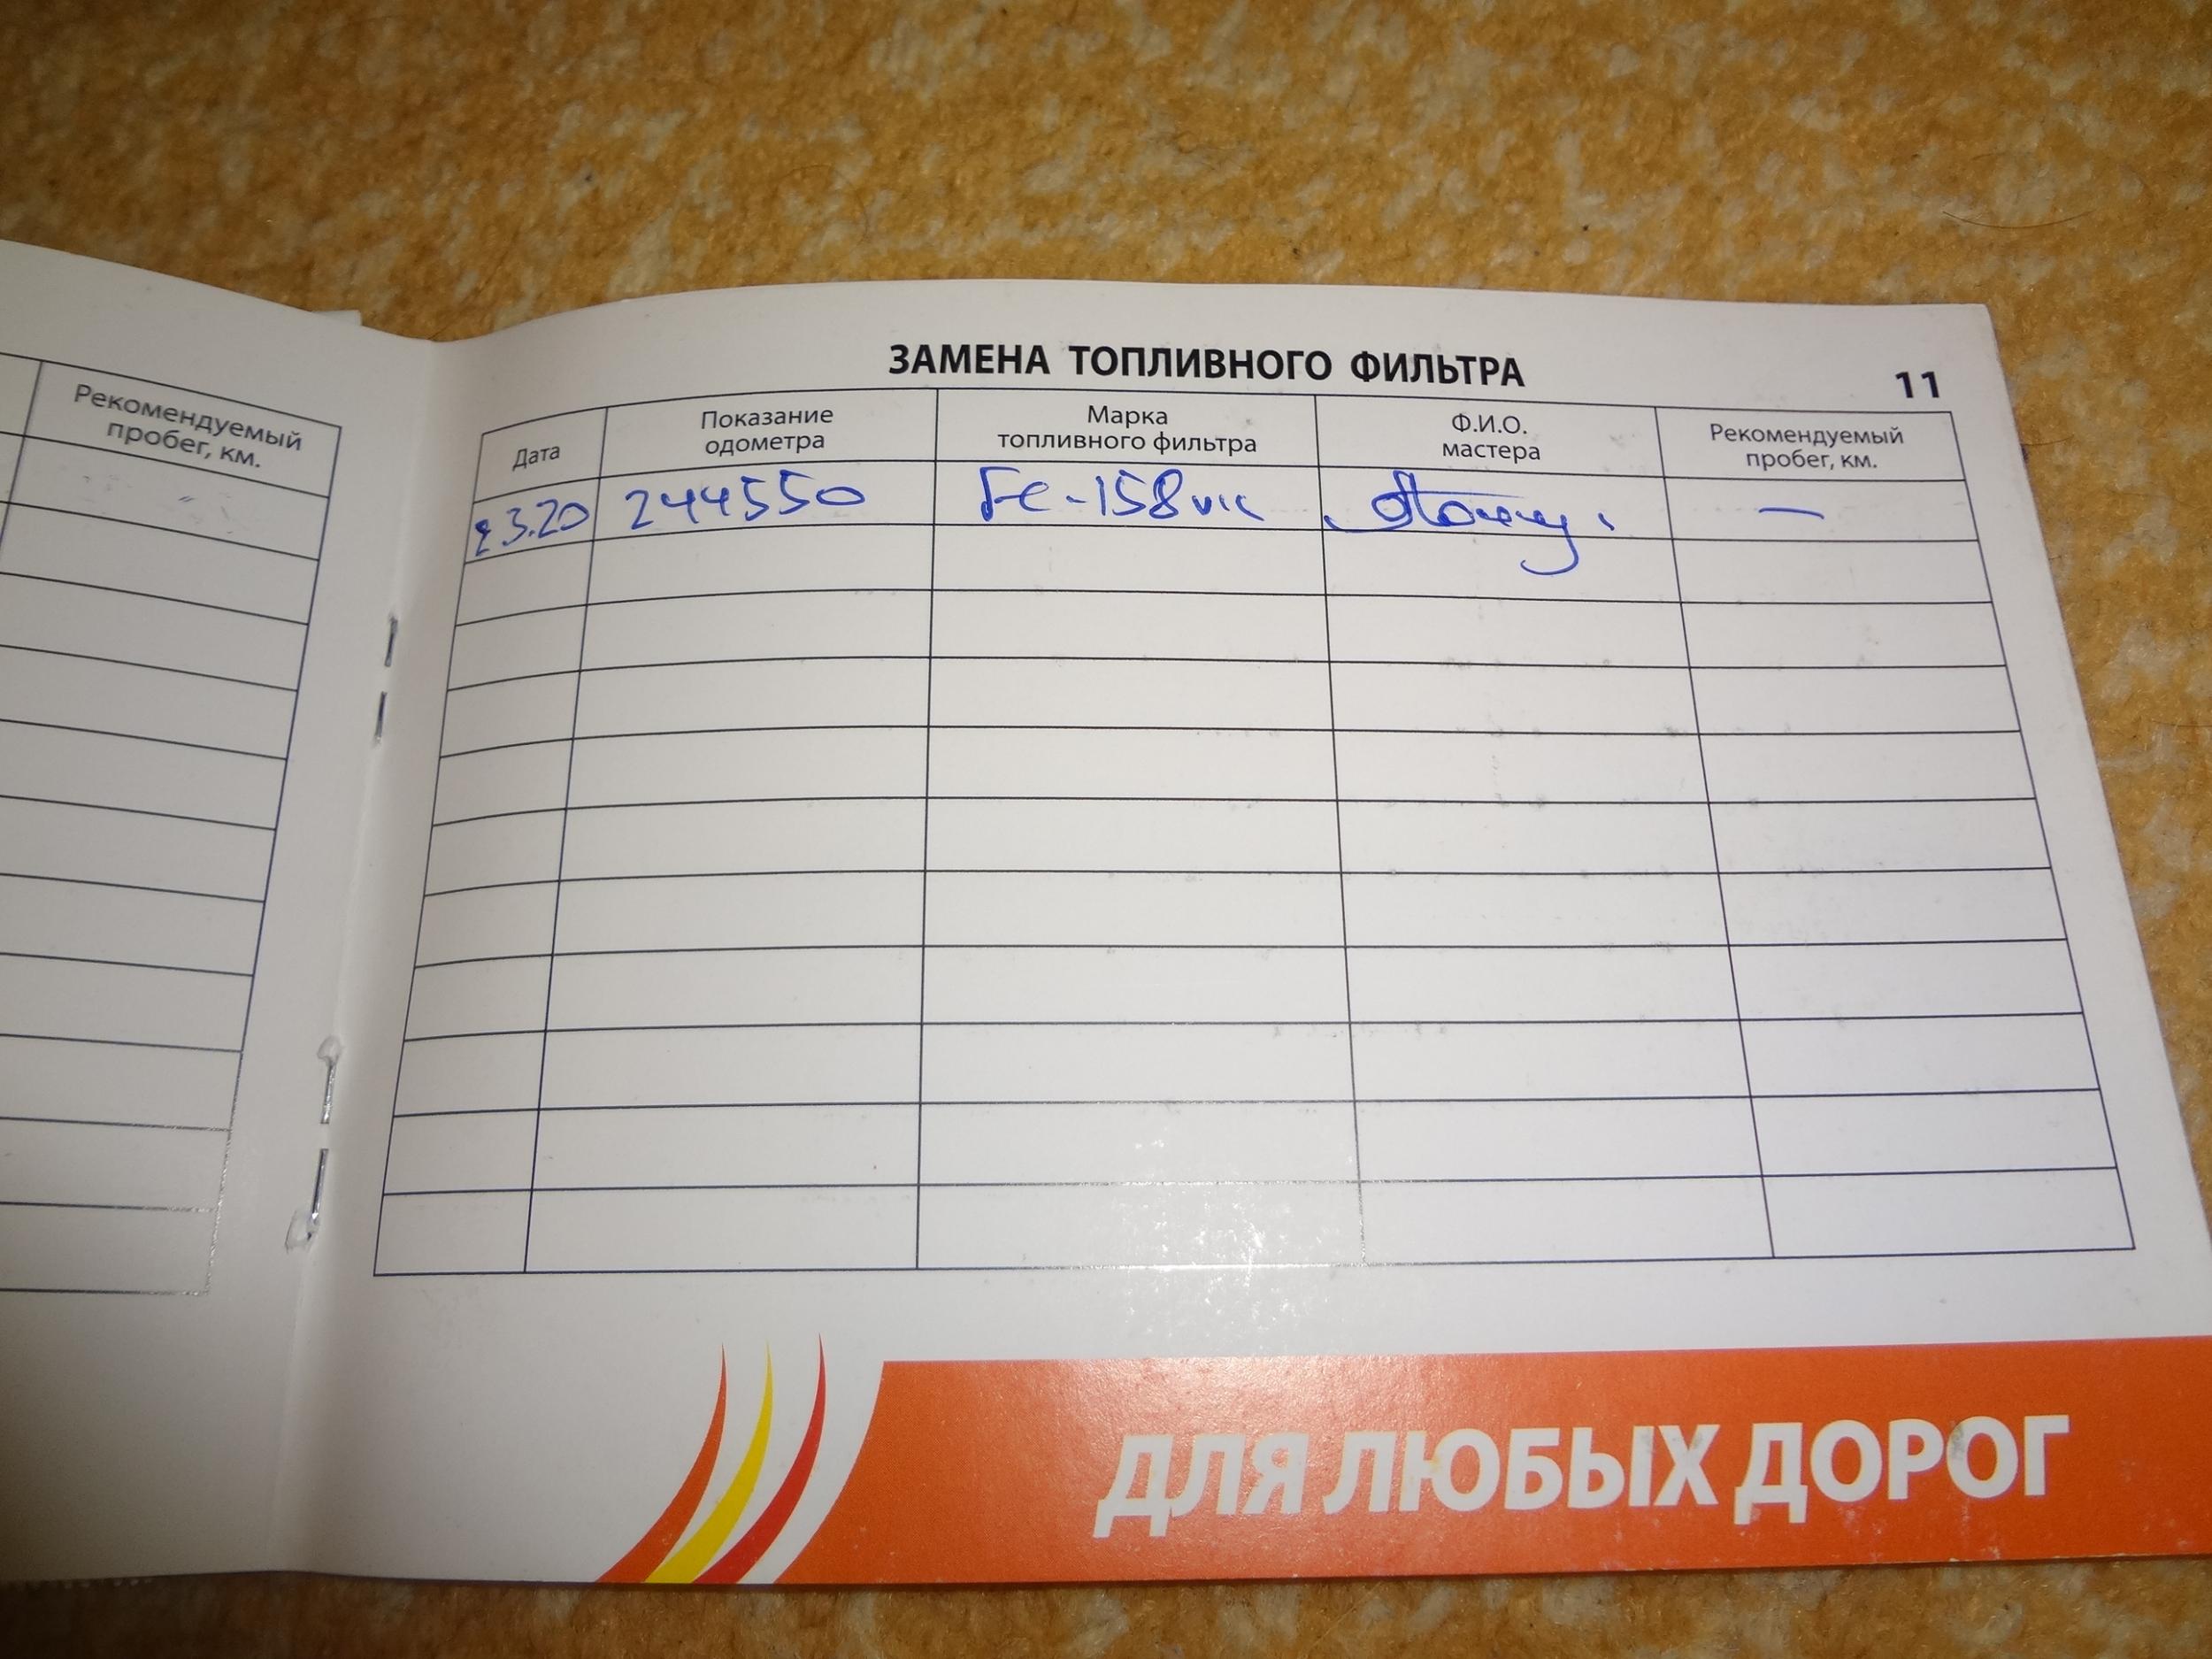 Рекомендуемый
пробег, км.
ЗАМЕНА ТОПЛИВНОГО ФИЛЬТРА
11
Дата
Показание
одометра
Марка
топливного фильтра
Ф.И.О.
мастера
Рекомендуемый
пробег, км.
3.20 244550 FC-158 —
ДЛЯ ЛЮБЫХ ДОРОГ